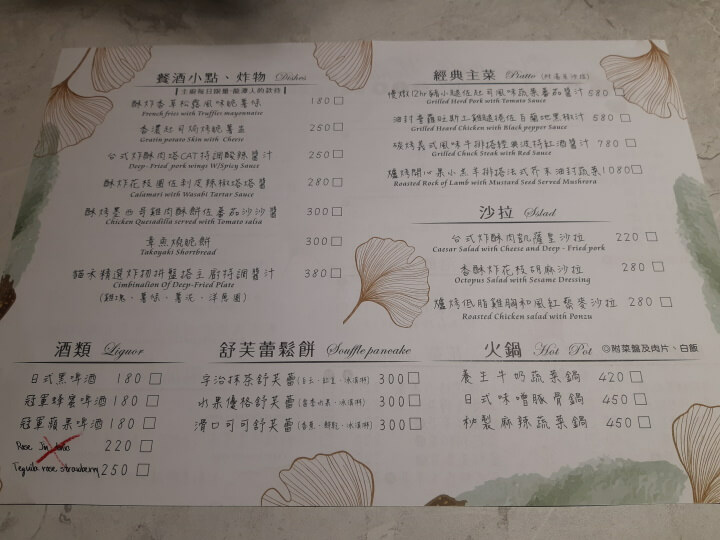 餐酒小點、炸物 Dishes
酥炸香草松露風味脆薯條 180
French fries with Truffles mayonnaise
香濃起司焗烤脆薯 250
Gratin potato Skin with Cheese
台式炸酥肉塔CAT特調酸辣醬汁 250
Deep-Fried pork wings W/Spicy Sauce
酥炸花枝圈佐 辣椒塔塔醬 280
Calamari with Wasabi Tartar Sauce
酥烤墨西哥雞肉酥餅佐蕃茄沙沙醬 300
Chicken Quesadilla served with Tomato salsa
章魚燒脆餅 300
Takoyaki Shortbread
貓禾精選炸物拼盤搭主廚特調醬汁 380
Cimbination Of Deep-Fried Plate
(雞塊、薯條、薯 、洋蔥圈)
經典主菜 Piatto
慢燉12hr豬小腿佐起司風味蔬菜蕃茄醬汁 580
Grilled Herd Pork with Tomato Sauce
油封 雞腿捲佐 黑椒汁 580
Grilled Heard Chicken with Black pepper Sauce
碳烤美式風味牛排搭經典波特紅酒醬汁 780
Grilled Chuck Steak with Red Sauce
爐烤開心果小羔羊排搭法式芥末油封蔬菜 1080
Roasted Rock of Lamb with Mustard Seed Served Mushrera
沙拉 Salad
台式炸酥肉凱薩堡沙拉 220
Caesar Salad with Cheese and Deep - Fried pork
香酥炸花枝胡麻沙拉 280
Octopus Salad with Sesame Dressing
爐烤低脂雞胸和風紅藜麥沙拉 280
Roasted Chicken salad with Ponzu
酒類 Liquor
日式黑啤酒 180
冠軍蜂蜜啤酒 180
冠軍蘋果啤酒 180
Rose 220
Tequila rose strawberry 250
舒芙蕾鬆餅 Souffle pancake
宇治抹茶舒芙蕾 300
水果優格舒芙蕾 300
滑口可可舒芙蕾 300
火鍋 Hot Pot ◎附菜盤及肉片、白飯
養生牛奶蔬菜鍋 420
日式味噌豚骨鍋 450
秘製麻辣蔬菜鍋 450